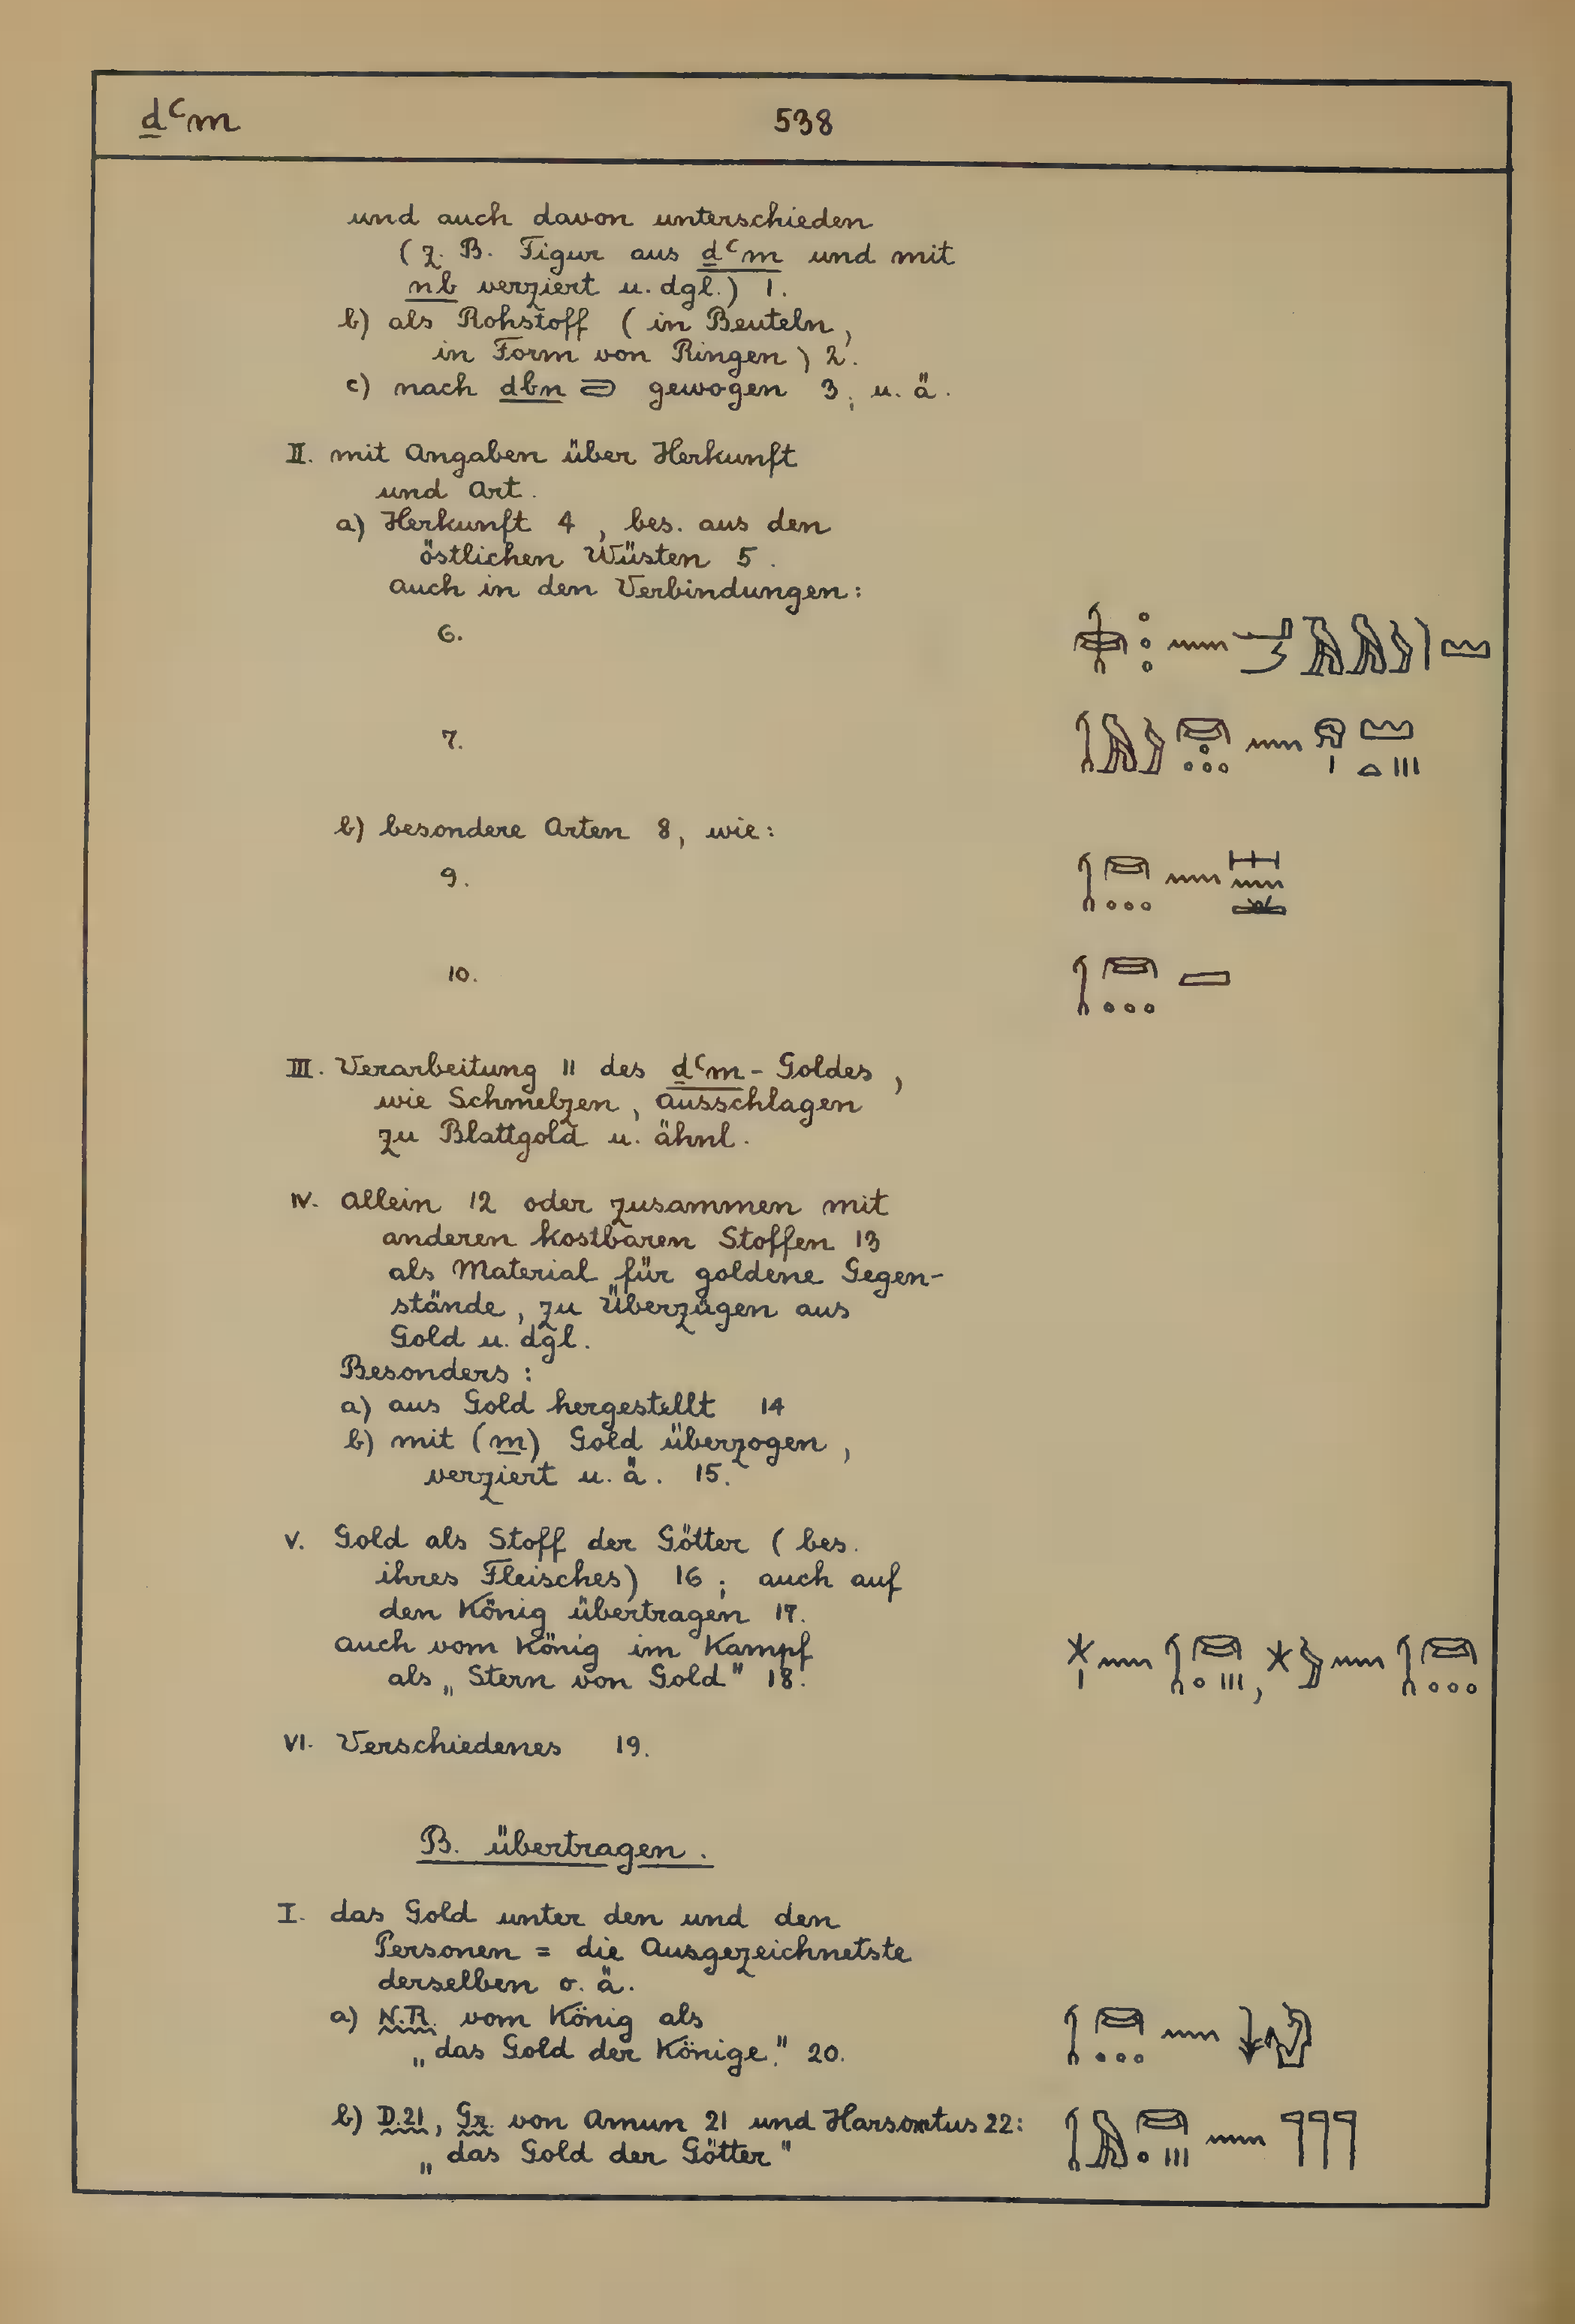 ḏꜥm 538
und auch davon unterschieden
( z. B. Figur aus ḏꜥm und mit
nb verziert u. dgl. ) 1.
b) als Rohstoff ( in Beuteln,
in Form von Ringen ) 2.
c) nach dbn gewogen 3, u. ä.
II. mit Angaben über Herkunft
und Art.
a) Herkunft 4, bes. aus den
östlichen Wüsten 5.
auch in den Verbindungen:
6.
7.
b) besondere Arten 8, wie:
9.
10.
III. Verarbeitung 11 des ḏꜥm-Goldes,
wie Schmelzen, Ausschlagen
zu Blattgold u. ähnl.
IV. allein 12 oder zusammen mit
anderen kostbaren Stoffen 13
als Material für goldene Gegen-
stände, zu Überzügen aus
Gold u. dgl.
Besonders:
a) aus Gold hergestellt 14
b) mit (m) Gold überzogen,
verziert u. ä. 15.
V. Gold als Stoff der Götter ( bes.
ihres Fleisches) 16; auch auf
den König übertragen 17.
auch vom König im Kampf
als „Stern von Gold" 18.
VI. Verschiedenes 19.
B. übertragen.
I. das Gold unter den und den
Personen = die Ausgezeichnetste
derselben o. ä.
a) N.R. vom König als
„das Gold der Könige." 20.
b) D.21, Gr. von Amun 21 und Harsomtus 22:
„das Gold der Götter"